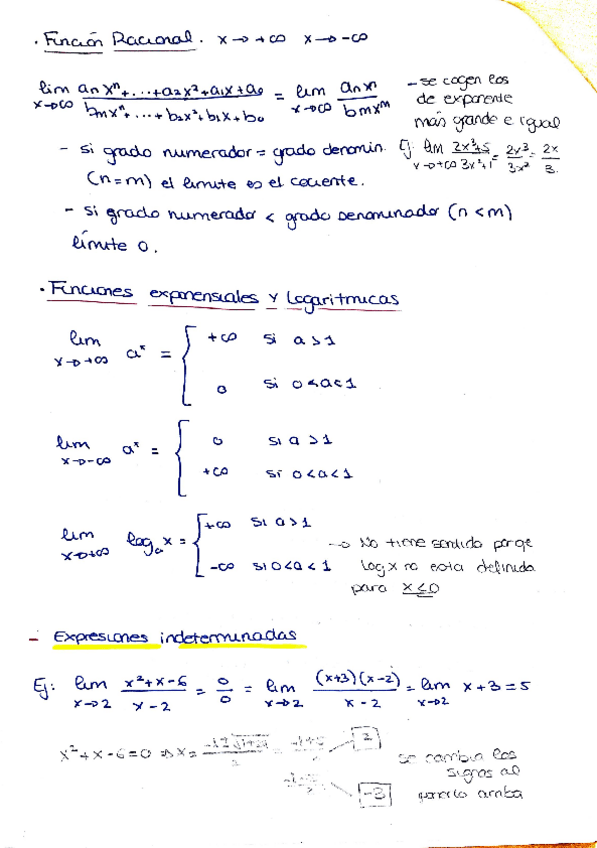 · Función Racional. x→+∞ x→-∞
lim x→∞ (anxⁿ+...+a2x²+a1x+a0)/(bmxⁿ+...+b2x²+b1x+b0) = lim x→∞ anxⁿ/bmxᵐ
- se cogen los
de exponente
más grande e igual
- si grado numerador = grado denomin.
(n=m) el límite es el cociente.
Ej: lim x→+∞ (2x³+5)/(3x²+1) = 2x³/3x² = 2x/3.
- si grado numerador < grado denominador (n<m)
límite 0.
· Funciones exponensiales y Logarítmicas
lim x→+∞ aˣ = { +∞ si a>1
0 si 0<a<1
lim x→-∞ aˣ = { 0 si a>1
+∞ si 0<a<1
lim x→+∞ logₐx = { +∞ si a>1
-∞ si 0<a<1
→ No tiene sentido porqe
logx no esta definida
para x≤0
- Expresiones indeterminadas
Ej: lim x→2 (x²+x-6)/(x-2) = 0/0 = lim x→2 (x+3)(x-2)/(x-2) = lim x→2 x+3=5
x²+x-6=0 ⇒ x= 2
-3
se cambia los
signos al
ponerlo arriba